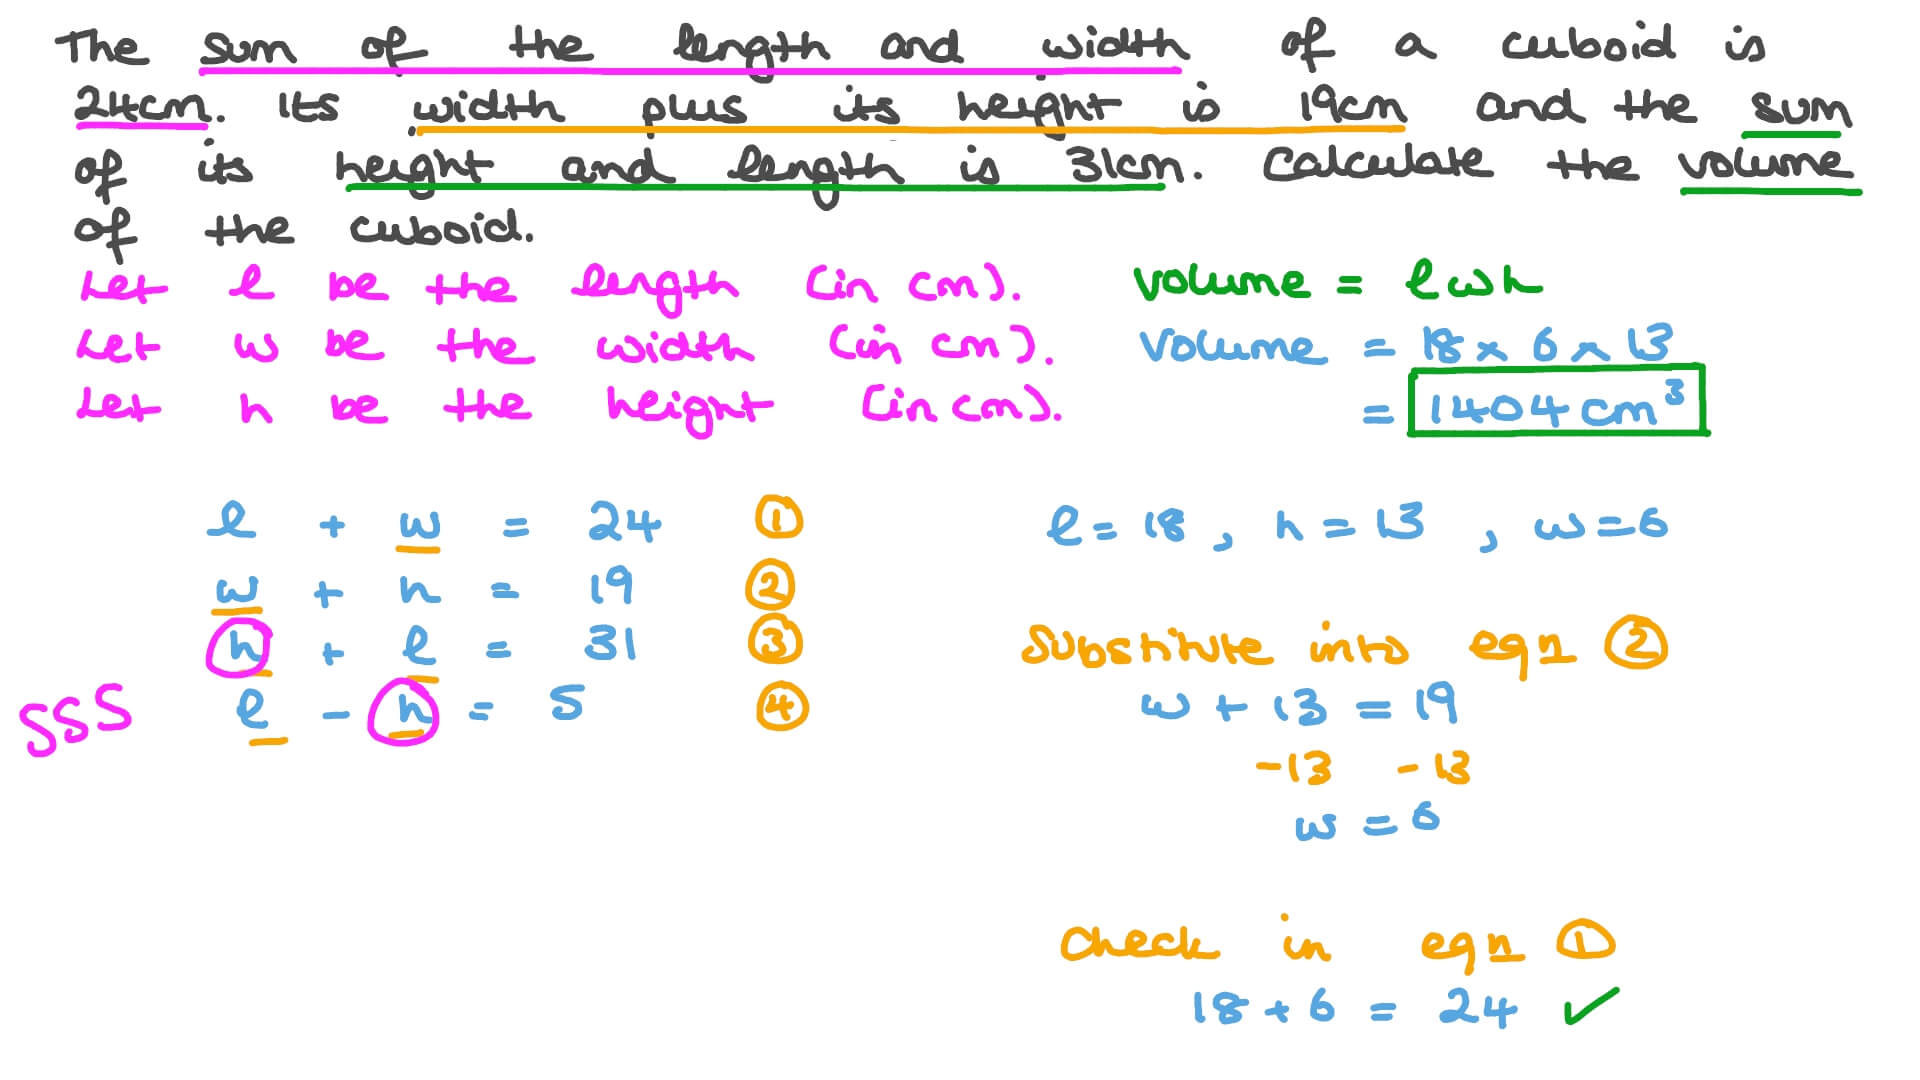 The sum of the length and width of a cuboid is
24cm. Its width plus its height is 19cm and the sum
of its height and length is 31cm. Calculate the volume
of the cuboid.
Let l be the length (in cm).
Let w be the width (in cm).
Let h be the height (in cm).
Volume = lwh
Volume = 18 x 6 x 13
= 1404 cm³
l + w = 24 ①
w + h = 19 ②
h + l = 31 ③
SSS l - h = 5 ④
l = 18, h = 13, w = 6
Substitute into eqn ②
w + 13 = 19
-13 -13
w = 6
Check in eqn ①
18 + 6 = 24 ✓